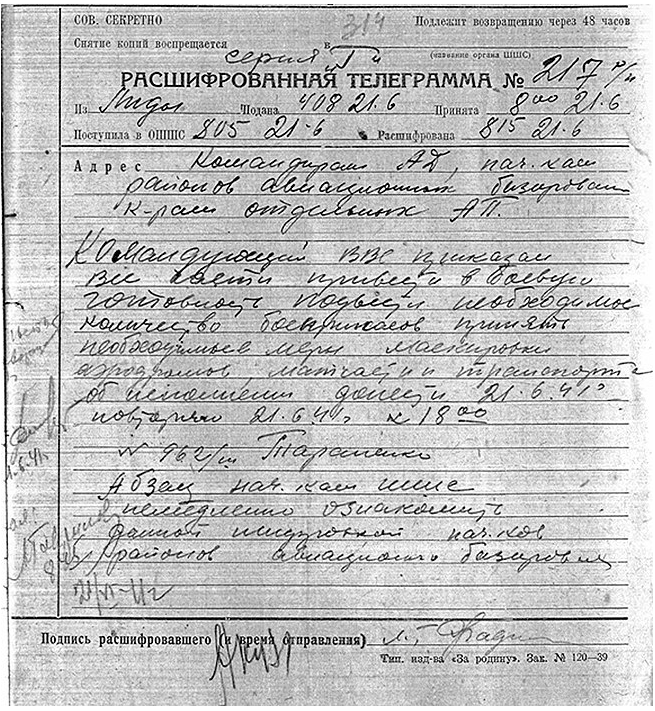 СОВ. СЕКРЕТНО
314
Подлежит возвращению через 48 часов
Снятие копий воспрещается
в
(название органа ШШС)
серия "Г"
РАСШИФРОВАННАЯ ТЕЛЕГРАММА № 217
Из Лиды Подана 408 21.6 Принята 8 00 21.6
Поступила в ОШШС 805 21-6 Расшифрована 815 21.6
Адрес Командирам АД, нач.кам
районов авиационных базирован
к-рам отдельных АП.
Командующий ВВС приказал
все части привести в боевую
готовность подвести необходимые
количество боеприпасов принять
необходимые меры маскировки
аэродромов матчасти и транспорта
об исполнении донести 21.6.41г
повторяю 21.6.41г к 18 00
№ 962/ш Тараненко
Абзац нач.кам шшс
немедленно ознакомить
данной шифровкой нач.ков
районов авиационного базировния
21/VI-41г
Подпись расшифровавшего (и время отправления)
Тип. изд-ва «За родину». Зак. № 120—39